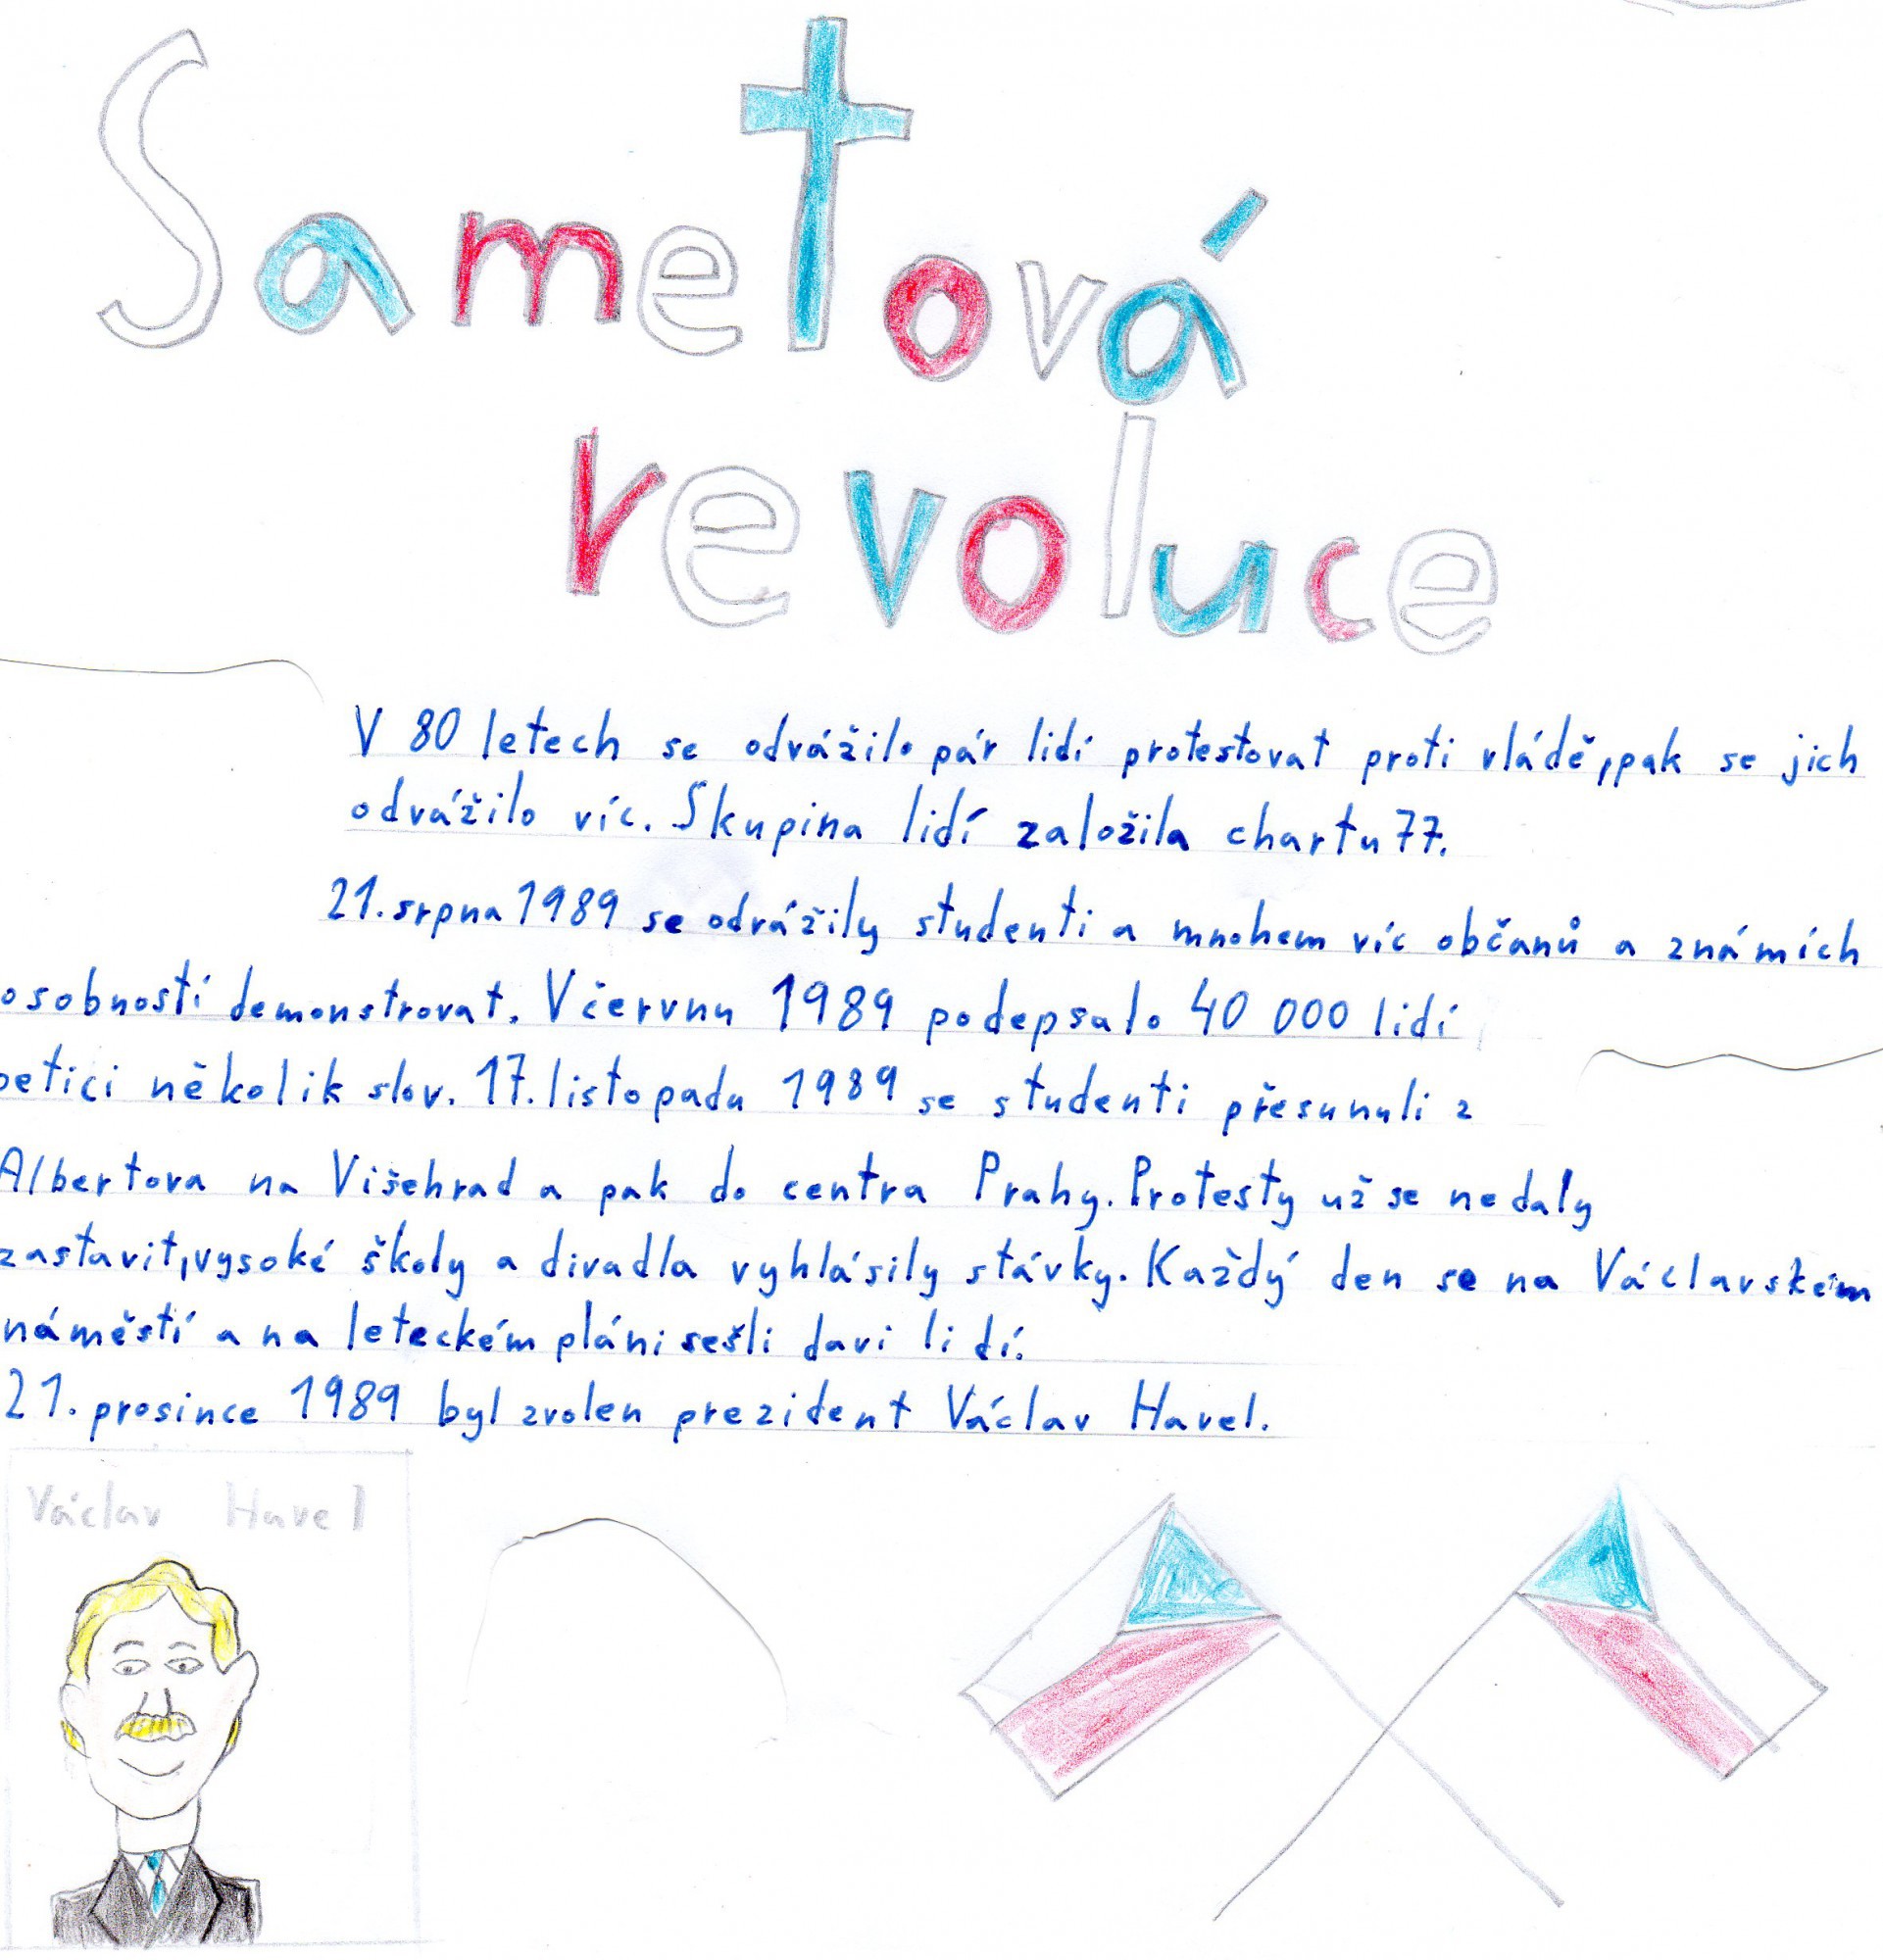 Sametová
revoluce
V 80 letech se odvážilo pár lidí protestovat proti vládě, pak se jich
odvážilo víc. Skupina lidí založila chartu 77.
21. srpna 1989 se odvážily studenti a mnohem víc občanů a známích
osobností demonstrovat. V červnu 1989 podepsalo 40 000 lidí
petici několik slov. 17. listopadu 1989 se studenti přesunuli z
Albertova na Višehrad a pak do centra Prahy. Protesty už se nedaly
zastavit, vysoké školy a divadla vyhlásily stávky. Každý den se na Václavském
náměstí a na leteckém pláni sešli davi lidí.
21. prosince 1989 byl zvolen prezident Václav Havel.
Václav Havel